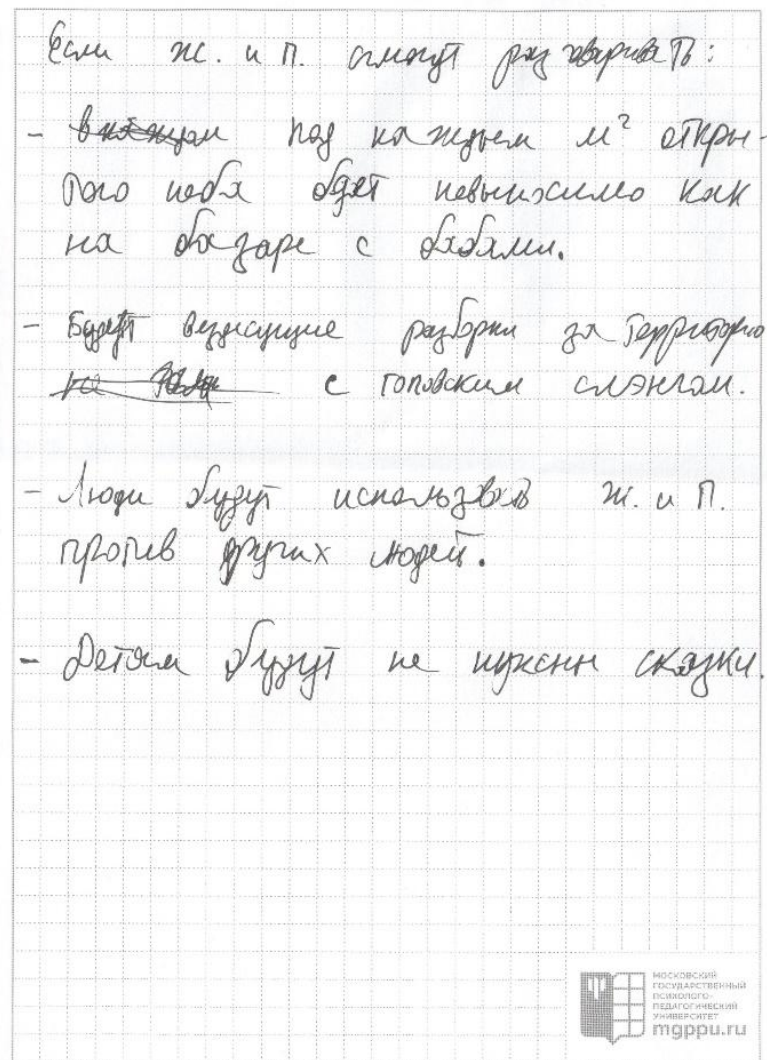 Если ж. и п. смогут разговаривать:
- под каждым м² откры-
того неба будет невыносимо как
на базаре с бабами.
- Будут вездесущие разборки за территорию
с гоповским слэнгом.
- Люди будут использовать ж. и п.
против других людей.
- Детям будут не нужны сказки.
МОСКОВСКИЙ
ГОСУДАРСТВЕННЫЙ
ПСИХОЛОГО-
ПЕДАГОГИЧЕСКИЙ
УНИВЕРСИТЕТ
mgppu.ru